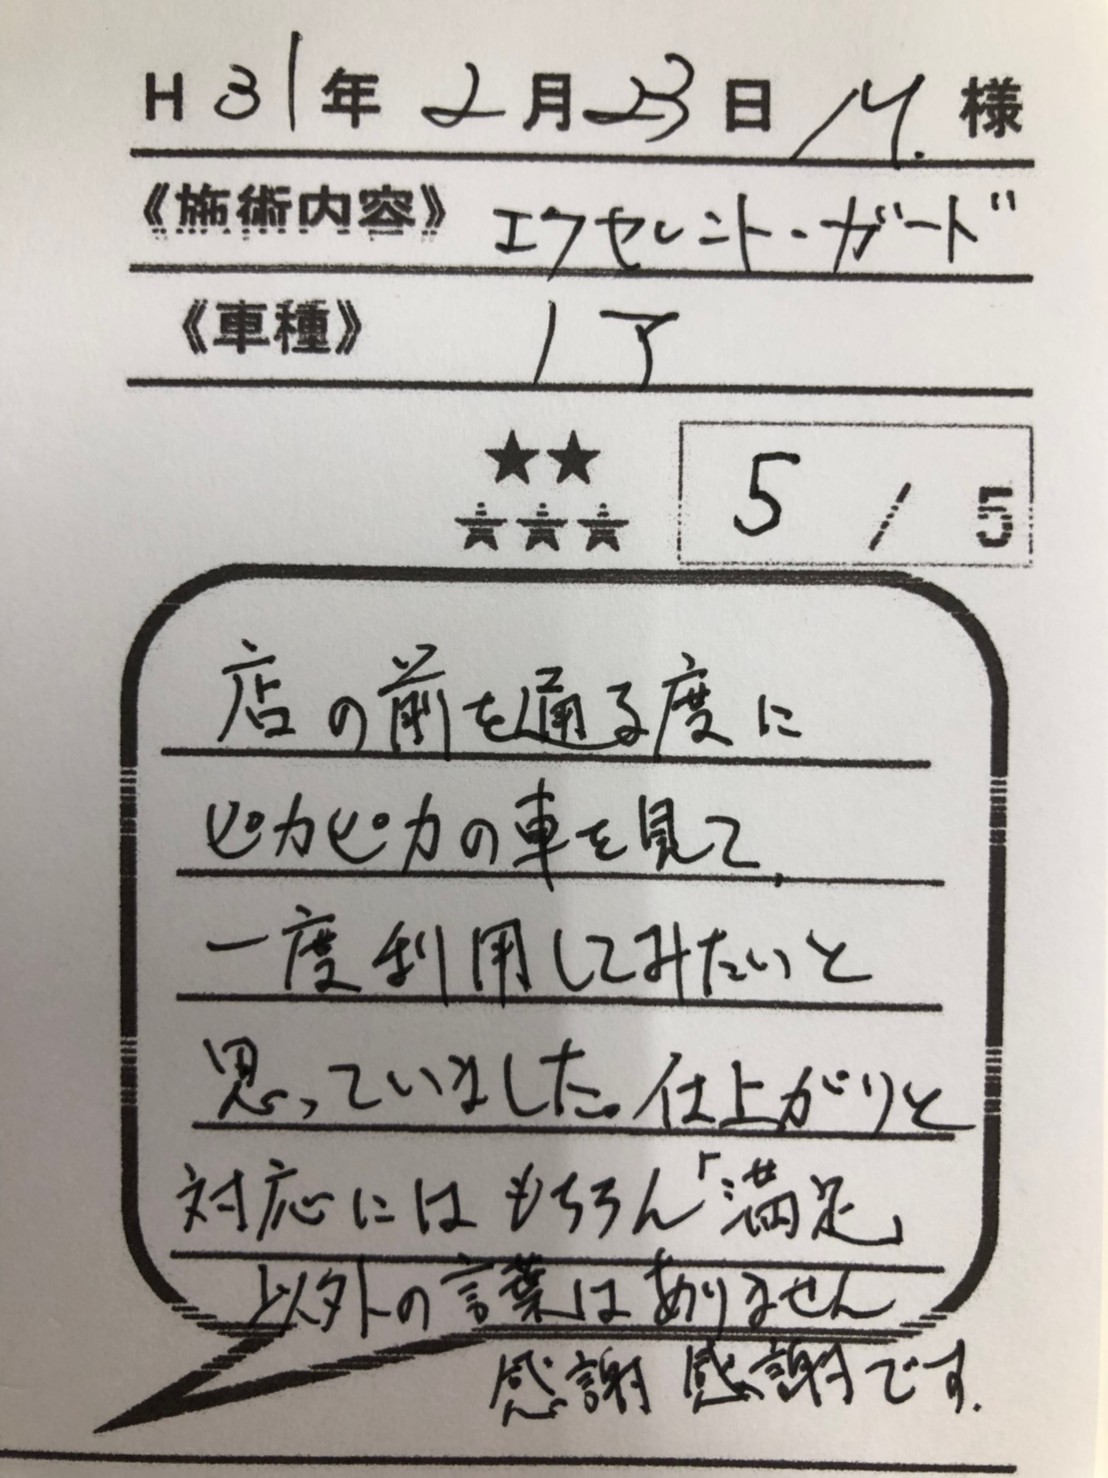 H31年 2月23日 M. 様
《施術内容》 エクセレント・ガード
《車種》 ノア
★★
★★★
5 / 5
店の前を通る度に
ピカピカの車を見て、
一度利用してみたいと
思っていました。仕上がりと
対応にはもちろん「満足」
以外の言葉はありません
感謝 感謝です.